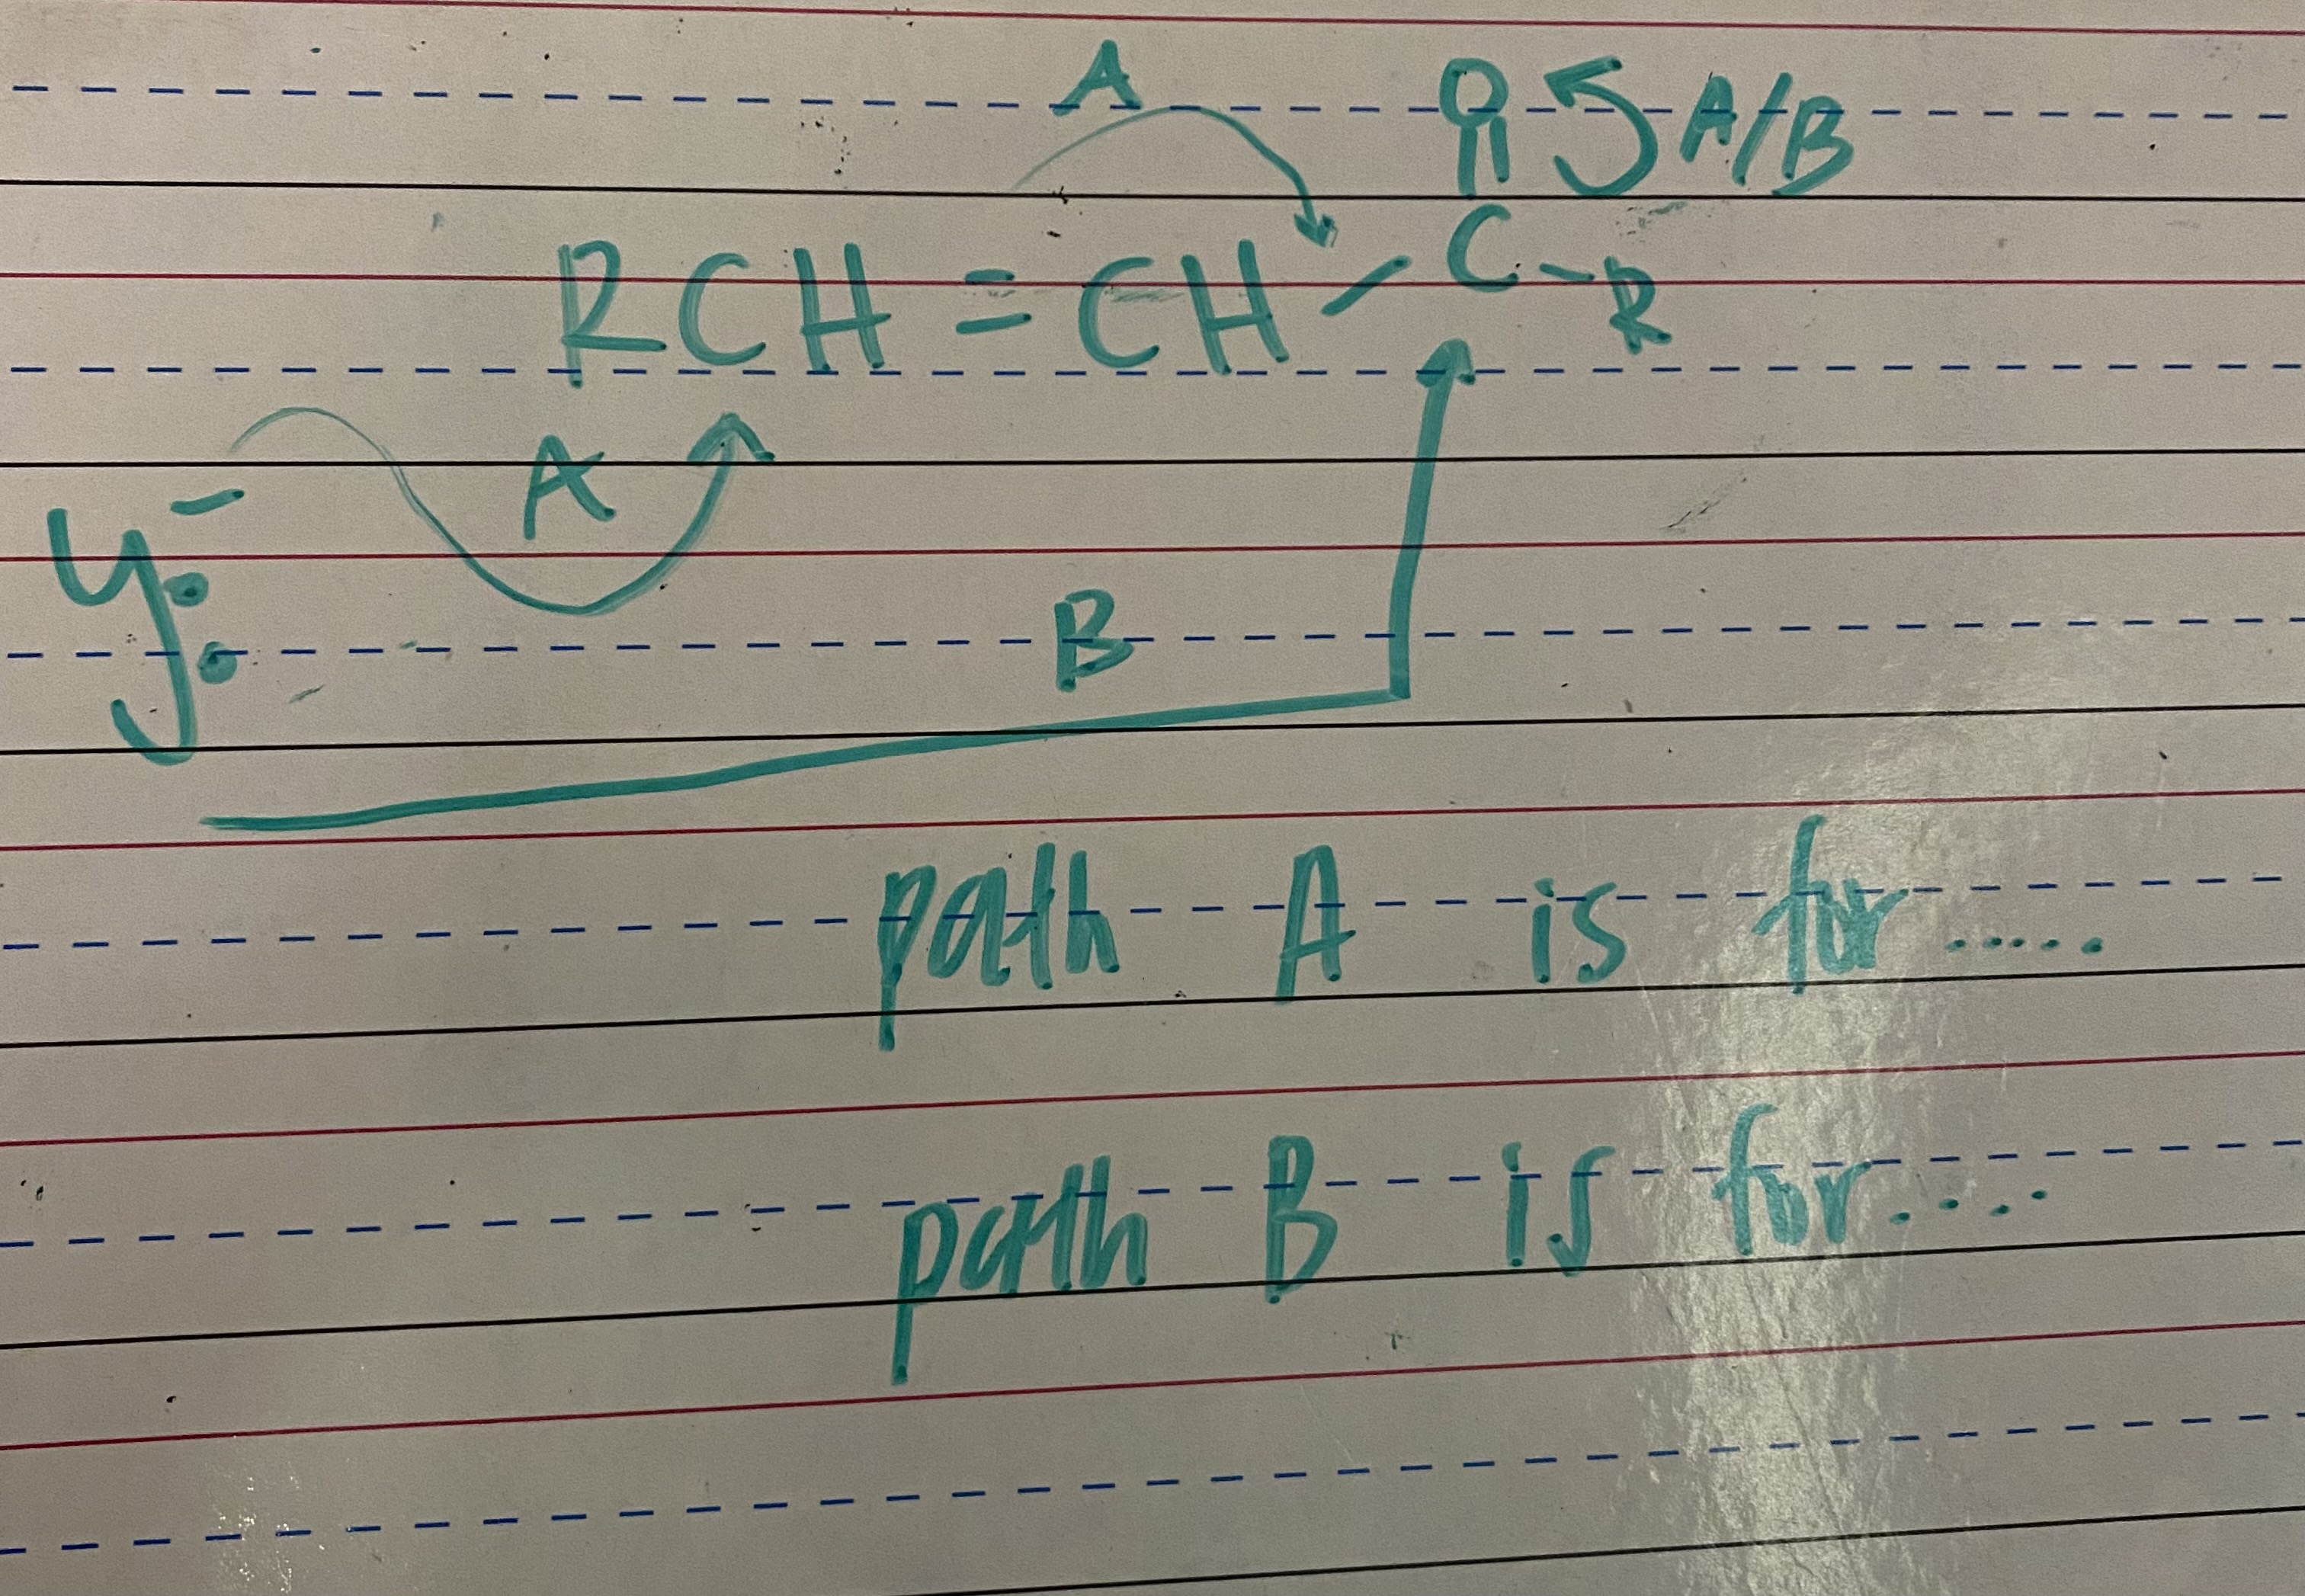 A
O A/B
||
RCH = CH - C - R
A
Y:⁻
B
path A is for .....
path B is for ....